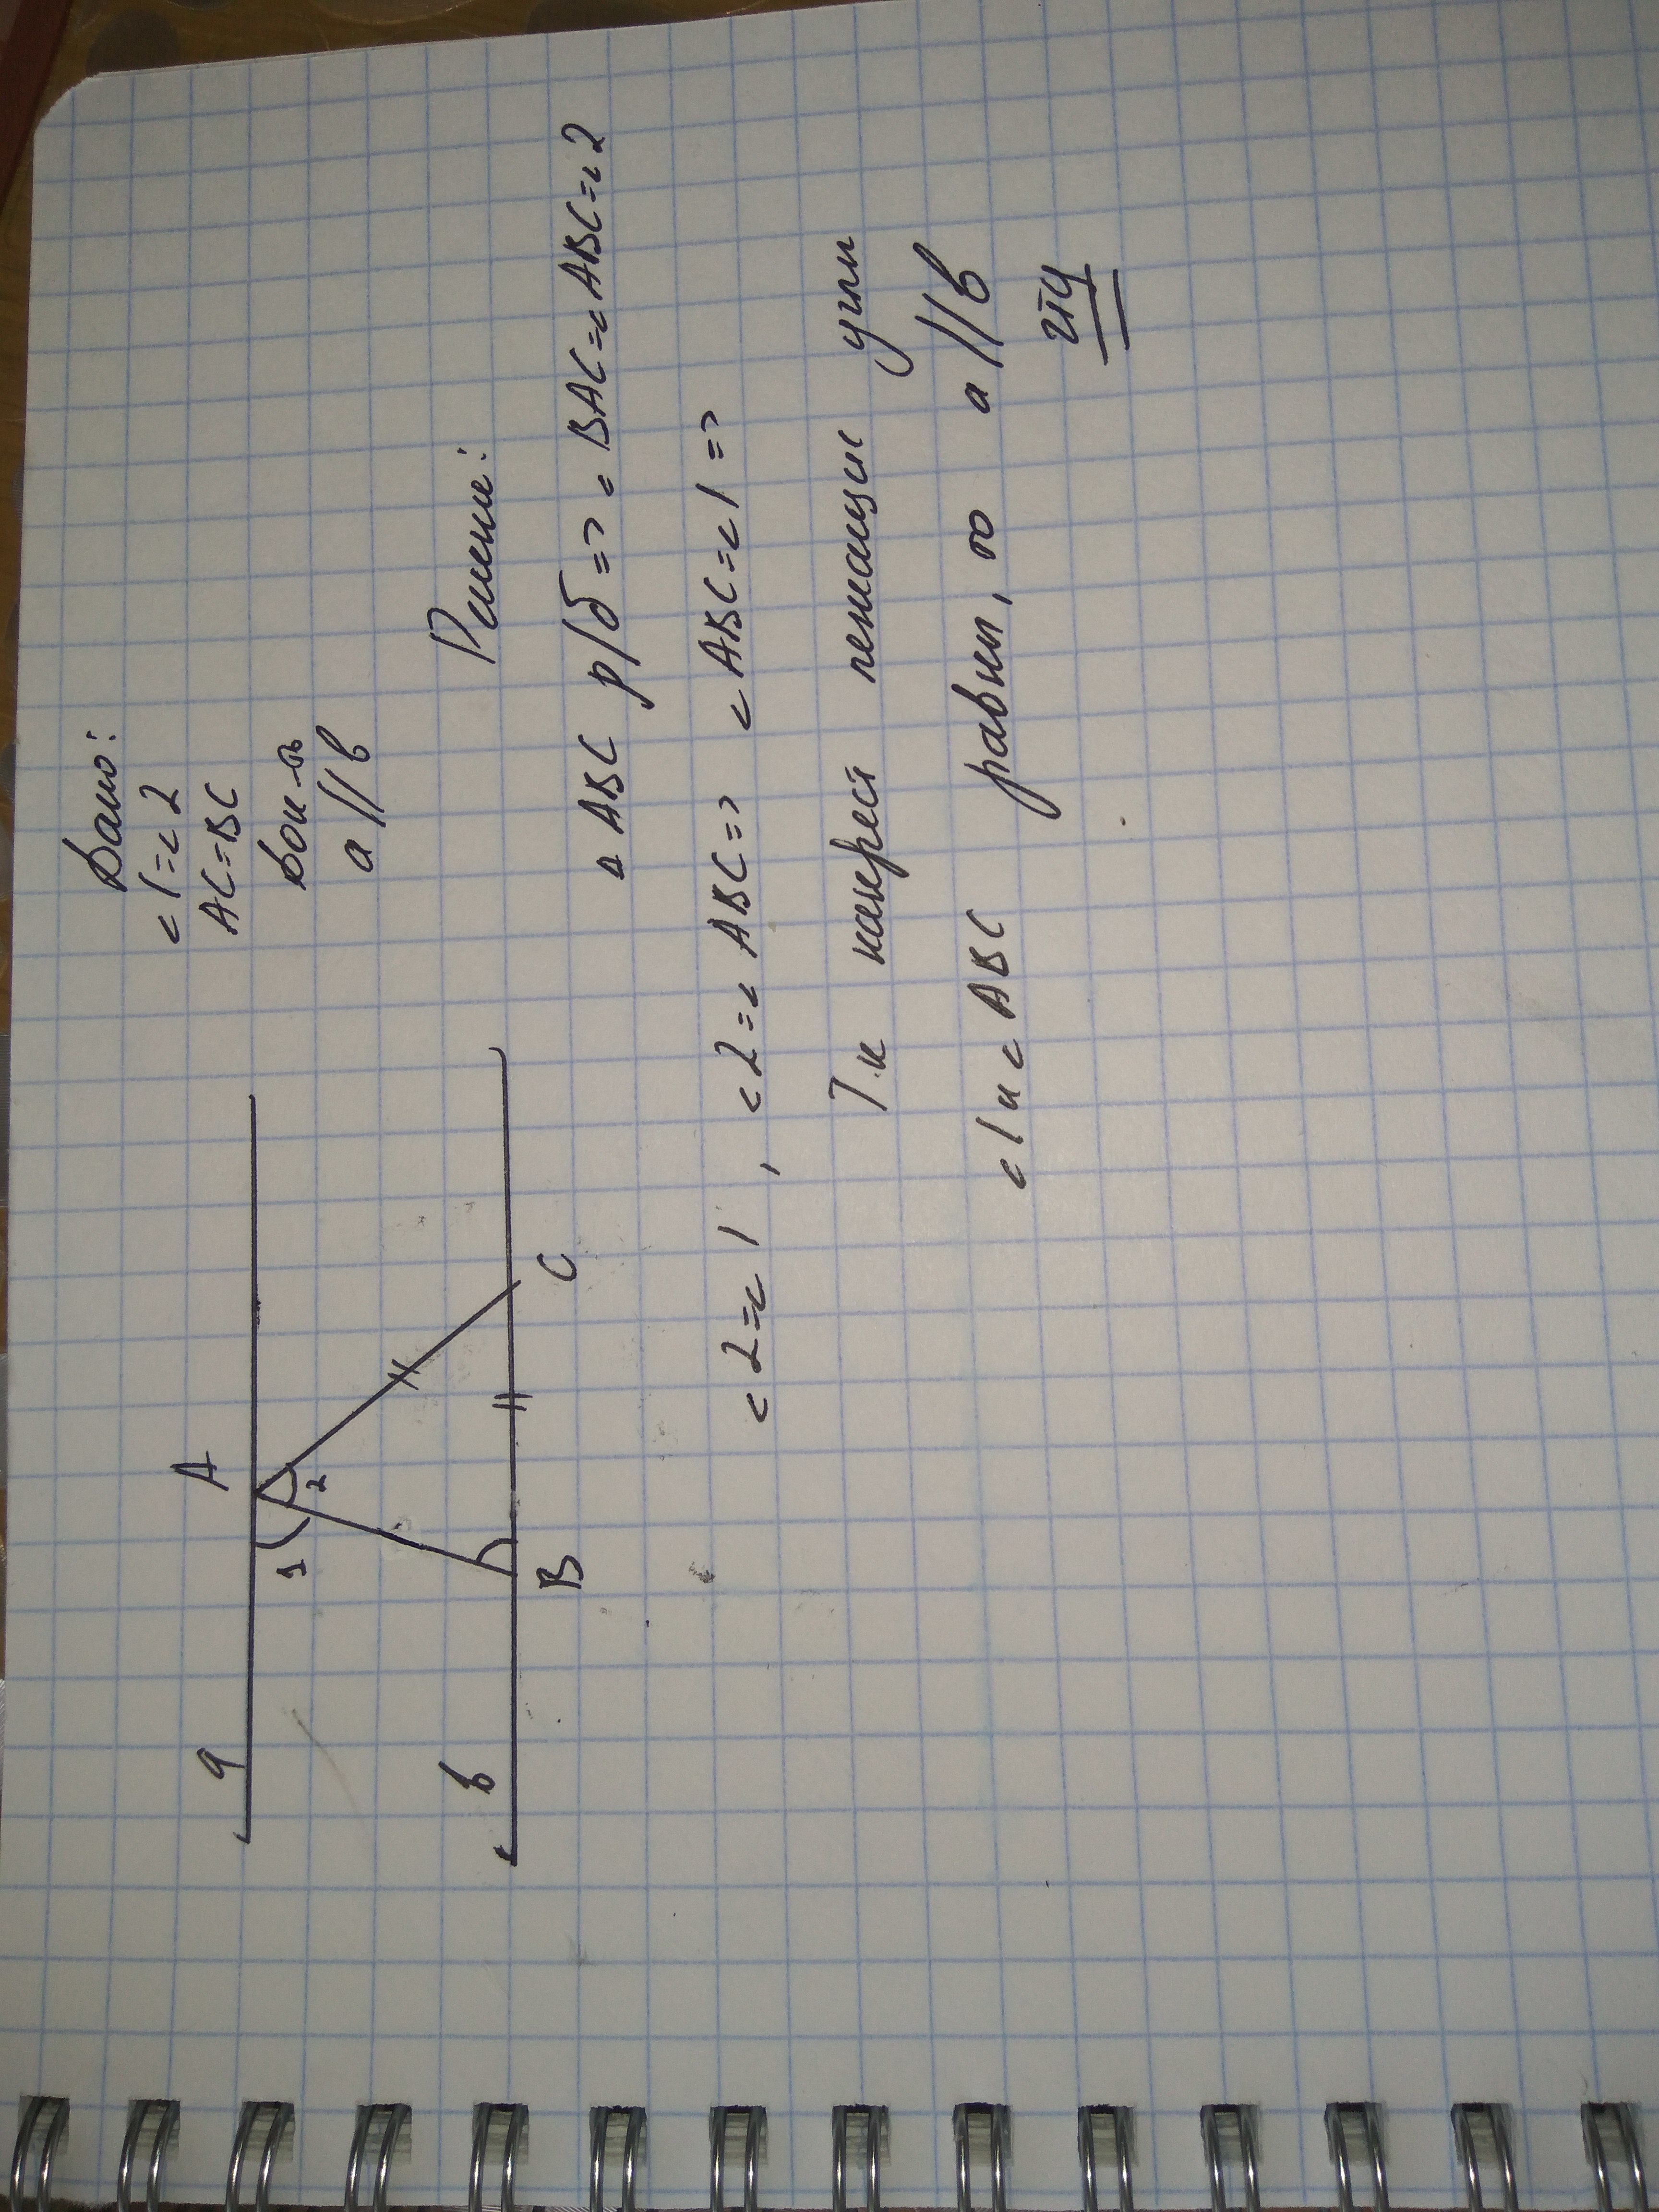 Дано:
<1=<2
AC=BC
Док-ть
a//b
a
A
1
2
b
B
C
Решение:
△ABC р/б => <BAC=<ABC=<2
<2=<1, <2=<ABC=> <ABC=<1 =>
Т.к накрест лежащие углы
<1 и <ABC равны, то a//b
чтд